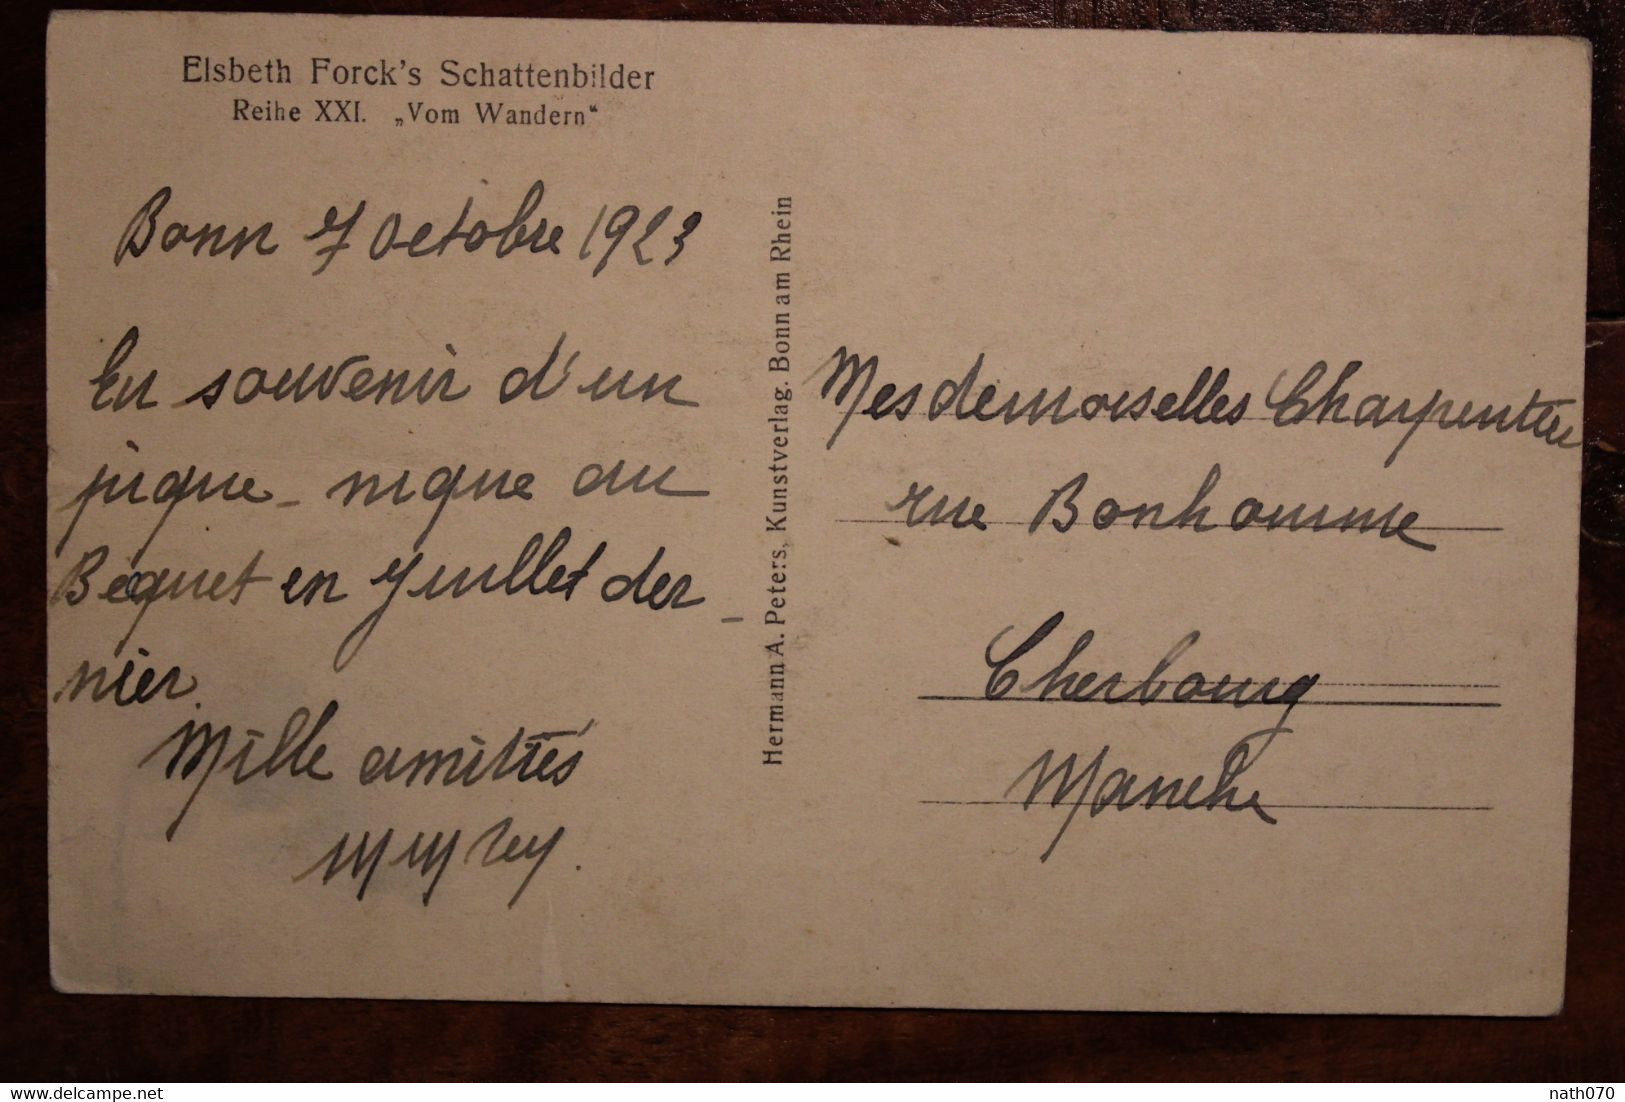 Elsbeth Forck's Schattenbilder
Reihe XXI. „Vom Wandern“
Bonn 7 Octobre 1923
En souvenir d'un
pique-nique au
Becquet en Juillet der-
nier.
Mille amitiés
Hermann A. Peters, Kunstverlag. Bonn am Rhein
Mesdemoiselles Charpentier
rue Bonhomme
Cherbourg
Manche
nath070